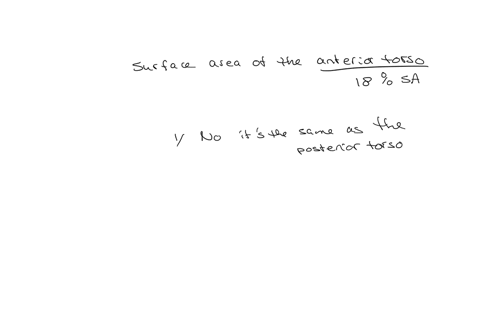 Surface area of the anterior torso
18 % SA
1/ No it's the same as the
posterior torso